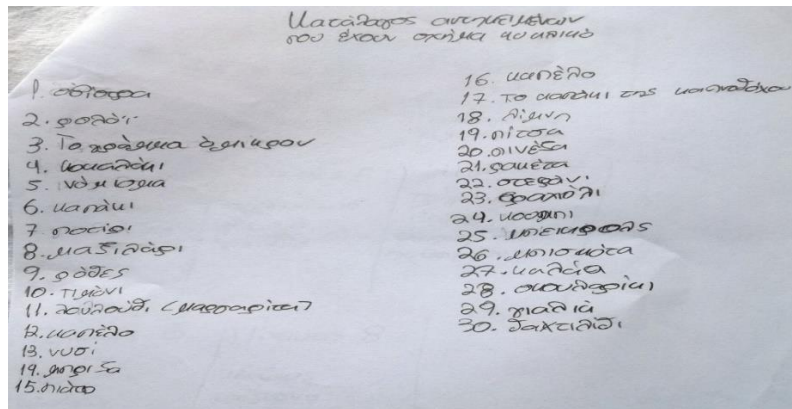 Κατάλογος αντικειμένων
που έχουν σχήμα κυκλικό
2. ρολόι
3. Το γράμμα όμικρον
4. κουκαλάκι
5. νόμισμα
6. καπάκι
7. ποτίρι
8. μαξιλάρι
9. ρόδες
10. τιμόνι
11. λουλούδι (μαργαρίτα)
12. καπέλο
13. νυσί
14.
15. πιάτο
16. καπέλο
17. Το καπάκι της καπνοδόχου
18. λίμνη
19. πίτσα
20. πινέδα
21. ρακέτα
22. στεφάνι
23. βραχιόλι
24. κουμπί
25. μπεικρολς
26. μπισκότα
27. καλάθα
28. σκουλαρίκι
29. γιαλιά
30. δαχτιλίδι